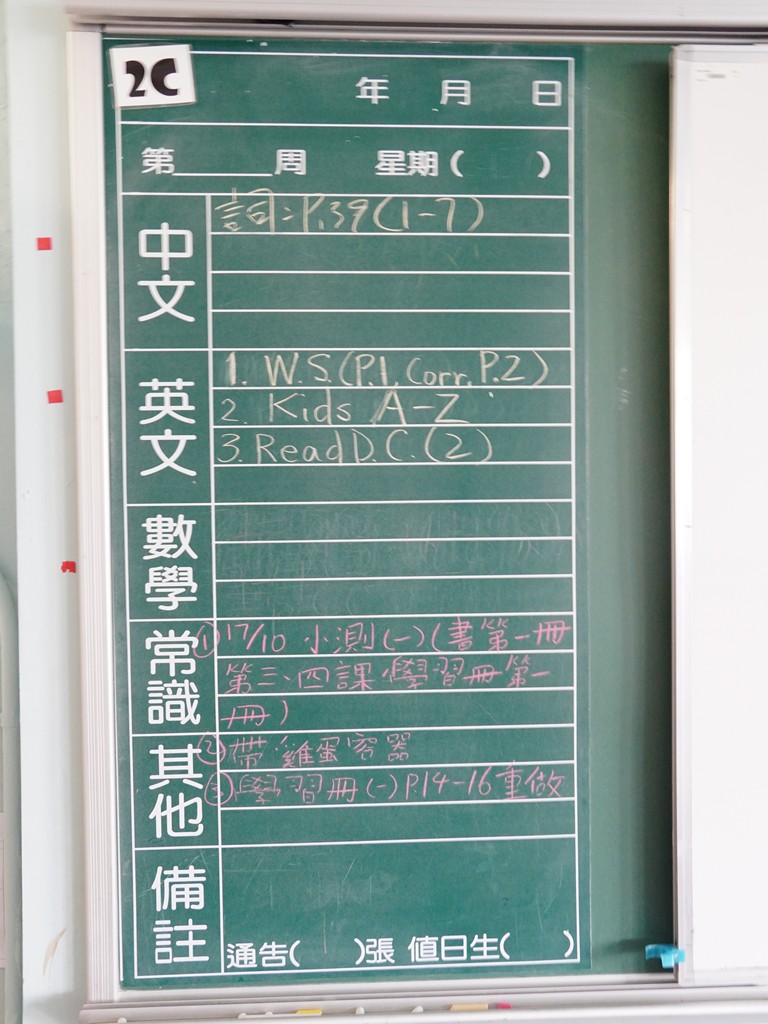 2C
年 月 日
第____周 星期( )
中文
詞:P.39(1-7)
英文
1. W.S.(P.1, Corr. P.2)
2. Kids A-Z
3. Read D.C.(2)
數學
常識
①17/10 小測(一)(書第一冊
第三、四課學習冊第一
冊)
其他
②帶雞蛋容器
③學習冊(一)P.14-16重做
備註
通告( )張 值日生( )